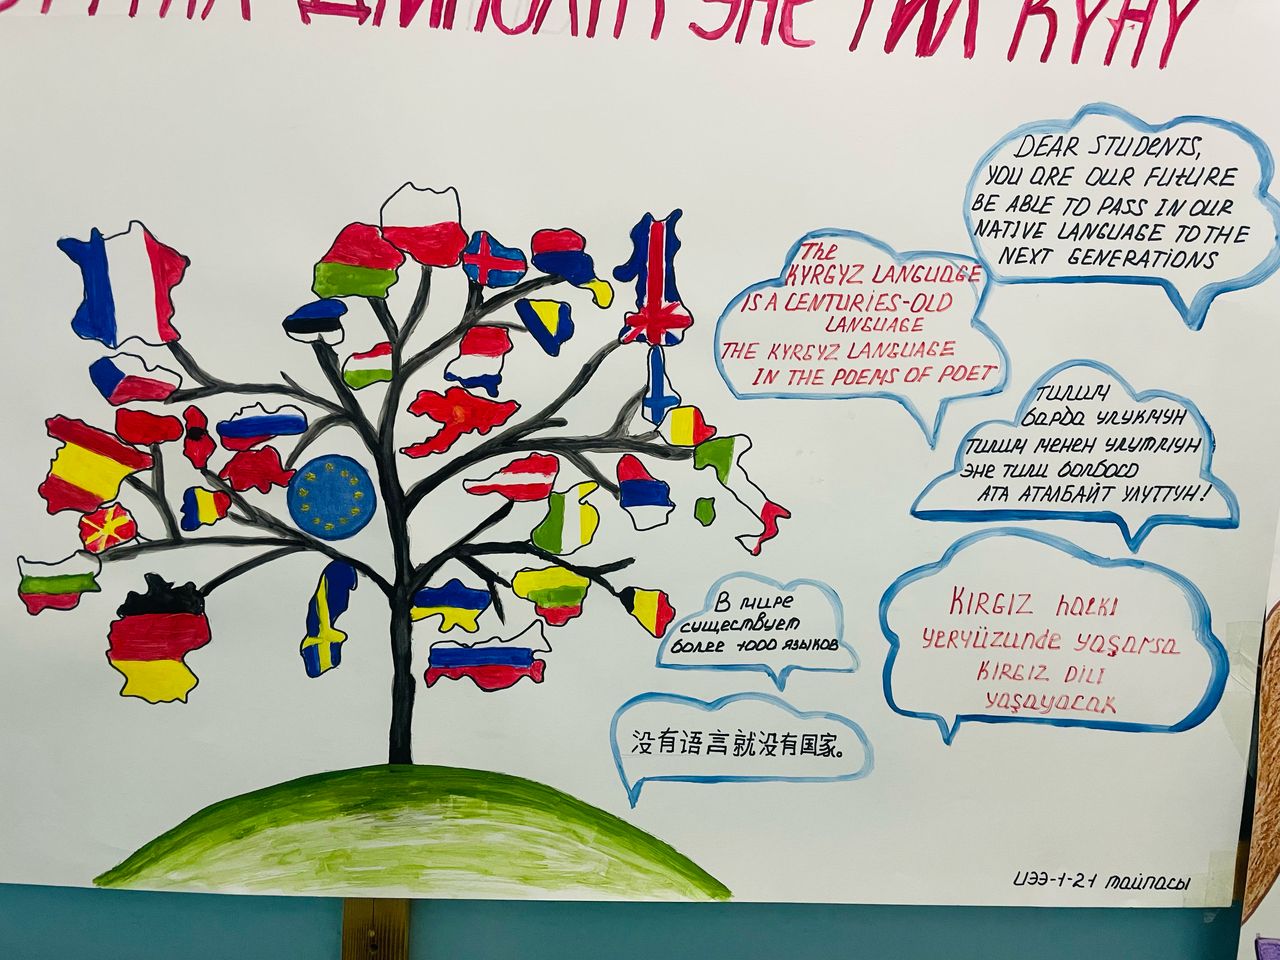 ЭНЕ ТИЛ КҮНҮ
DEAR STUDENTS,
YOU ARE OUR FUTURE
BE ABLE TO PASS IN OUR
NATIVE LANGUAGE TO THE
NEXT GENERATIONS
The
KYRGYZ LANGUAGE
IS A CENTURIES-OLD
LANGUAGE
THE KYRGYZ LANGUAGE
IN THE POEMS OF POET
Тилим
барда улукмун
тилим менен улутмун
эне тили болбосо
ата аталбайт улуттун!
KIRGIZ halkı
yeryüzünde yaşarsa
KIRGIZ DİLİ
yaşayacak
В мире
существует
более 7000 языков
没有语言就没有国家。
ИЭЭ-1-21 тайпасы